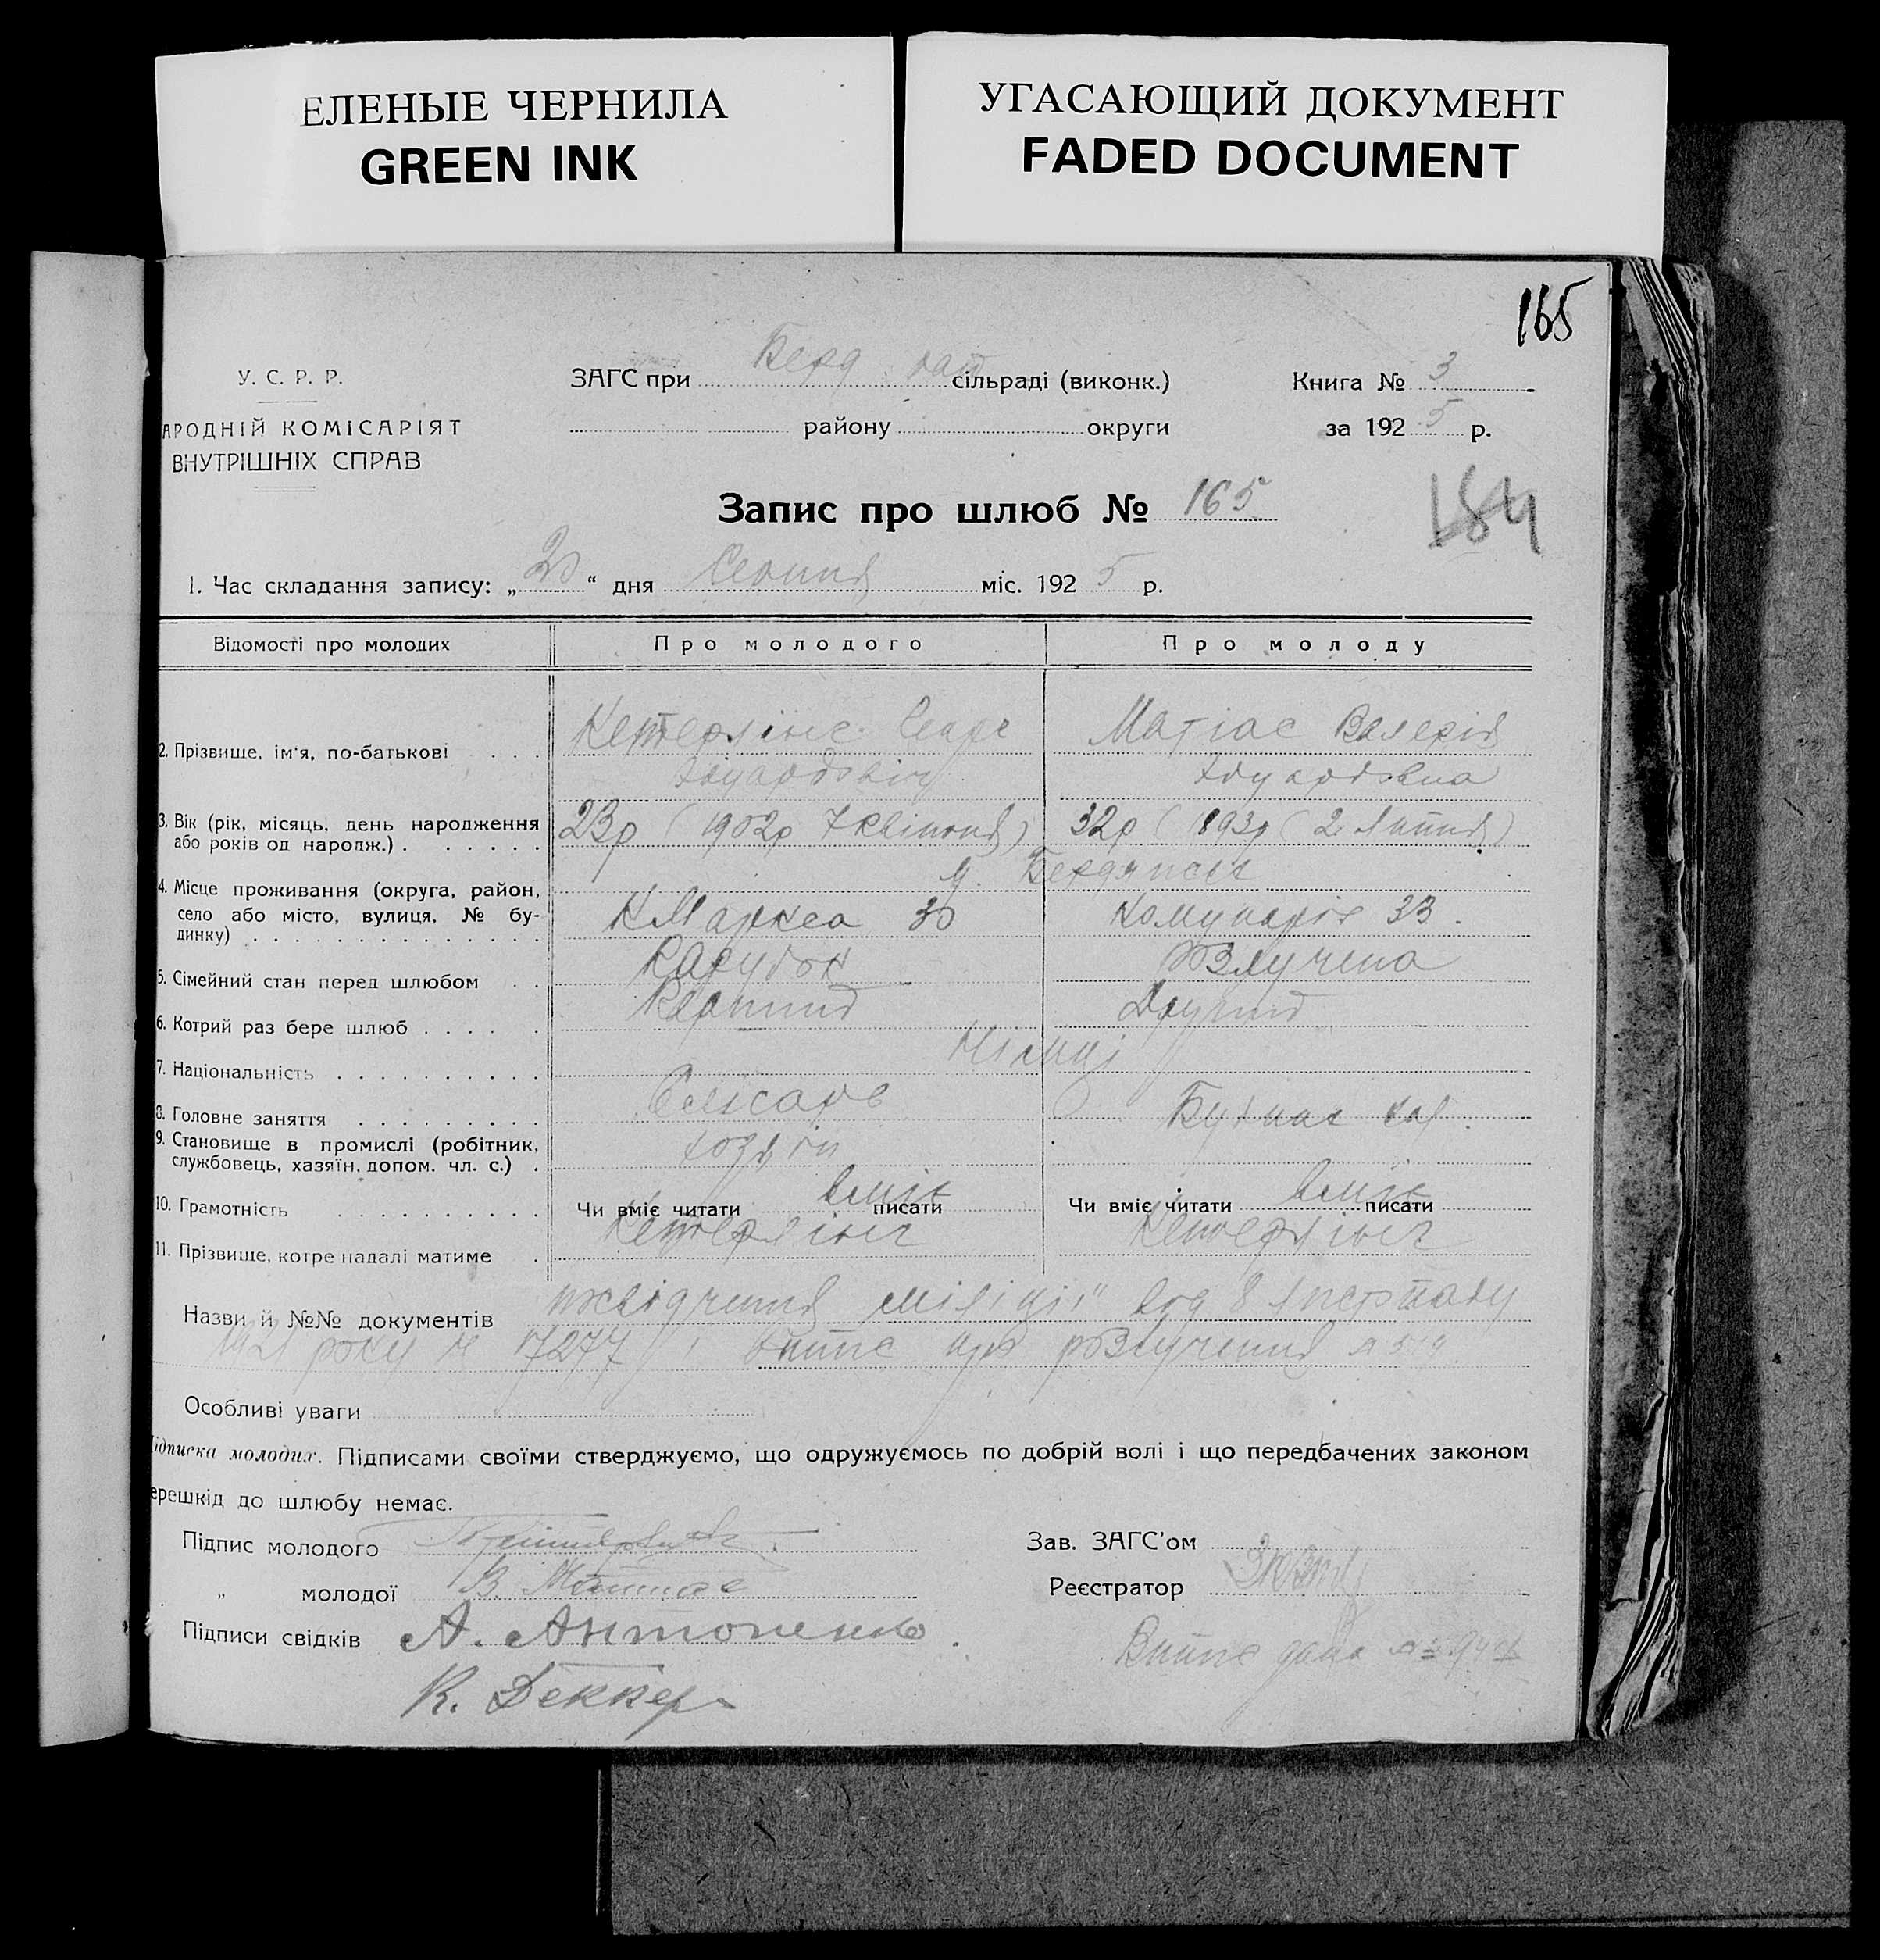 ЕЛЕНЫЕ ЧЕРНИЛА
GREEN INK
УГАСАЮЩИЙ ДОКУМЕНТ
FADED DOCUMENT
165
У. С. Р. Р.
АРОДНІЙ КОМІСАРІЯТ
ВНУТРІШНІХ СПРАВ
ЗАГС при Берд. сільраді (виконк.)
району округи
Книга № 3
за 192 5 р.
Запис про шлюб № 165
184
1. Час складання запису: „ 20 “ дня Серпня міс. 192 5 р.
Відомості про молодих Про молодого Про молоду
2. Прізвище, ім'я, по-батькові Кетерлінг Матіас Валерія
Едуардовіч Едуардовна
3. Вік (рік, місяць, день народження 23р (1902р 7 квітня) 32р (1893р (2 Липня)
або років од народж.)
м. Бердянськ
4. Місце проживання (округа, район,
село або місто, вулиця, № бу-
динку) К Маркса 30 Комунарів 33.
5. Сімейний стан перед шлюбом Парубок Розлучена
6. Котрий раз бере шлюб Другий
7. Національність Німці
8. Головне заняття Слюсарь
9. Становище в промислі (робітник,
службовець, хазяїн, допом. чл. с.)
10. Грамотність Чи вміє читати вміє писати Чи вміє читати вміє писати
11. Прізвище, котре надалі матиме Кетерлінг Кетерлінг
Назви й №№ документів посвідчення міліції від 8 Листопаду
року № 17277 і випис про розлучення
Особливі уваги
ідписка молодих. Підписами своїми стверджуємо, що одружуємось по добрій волі і що передбачених законом
ерешкід до шлюбу немає.
Підпис молодого
„ молодої В. Маттиас
Підписи свідків А. Антоненко.
К. Деккер
Зав. ЗАГС'ом
Реєстратор
Випис дано